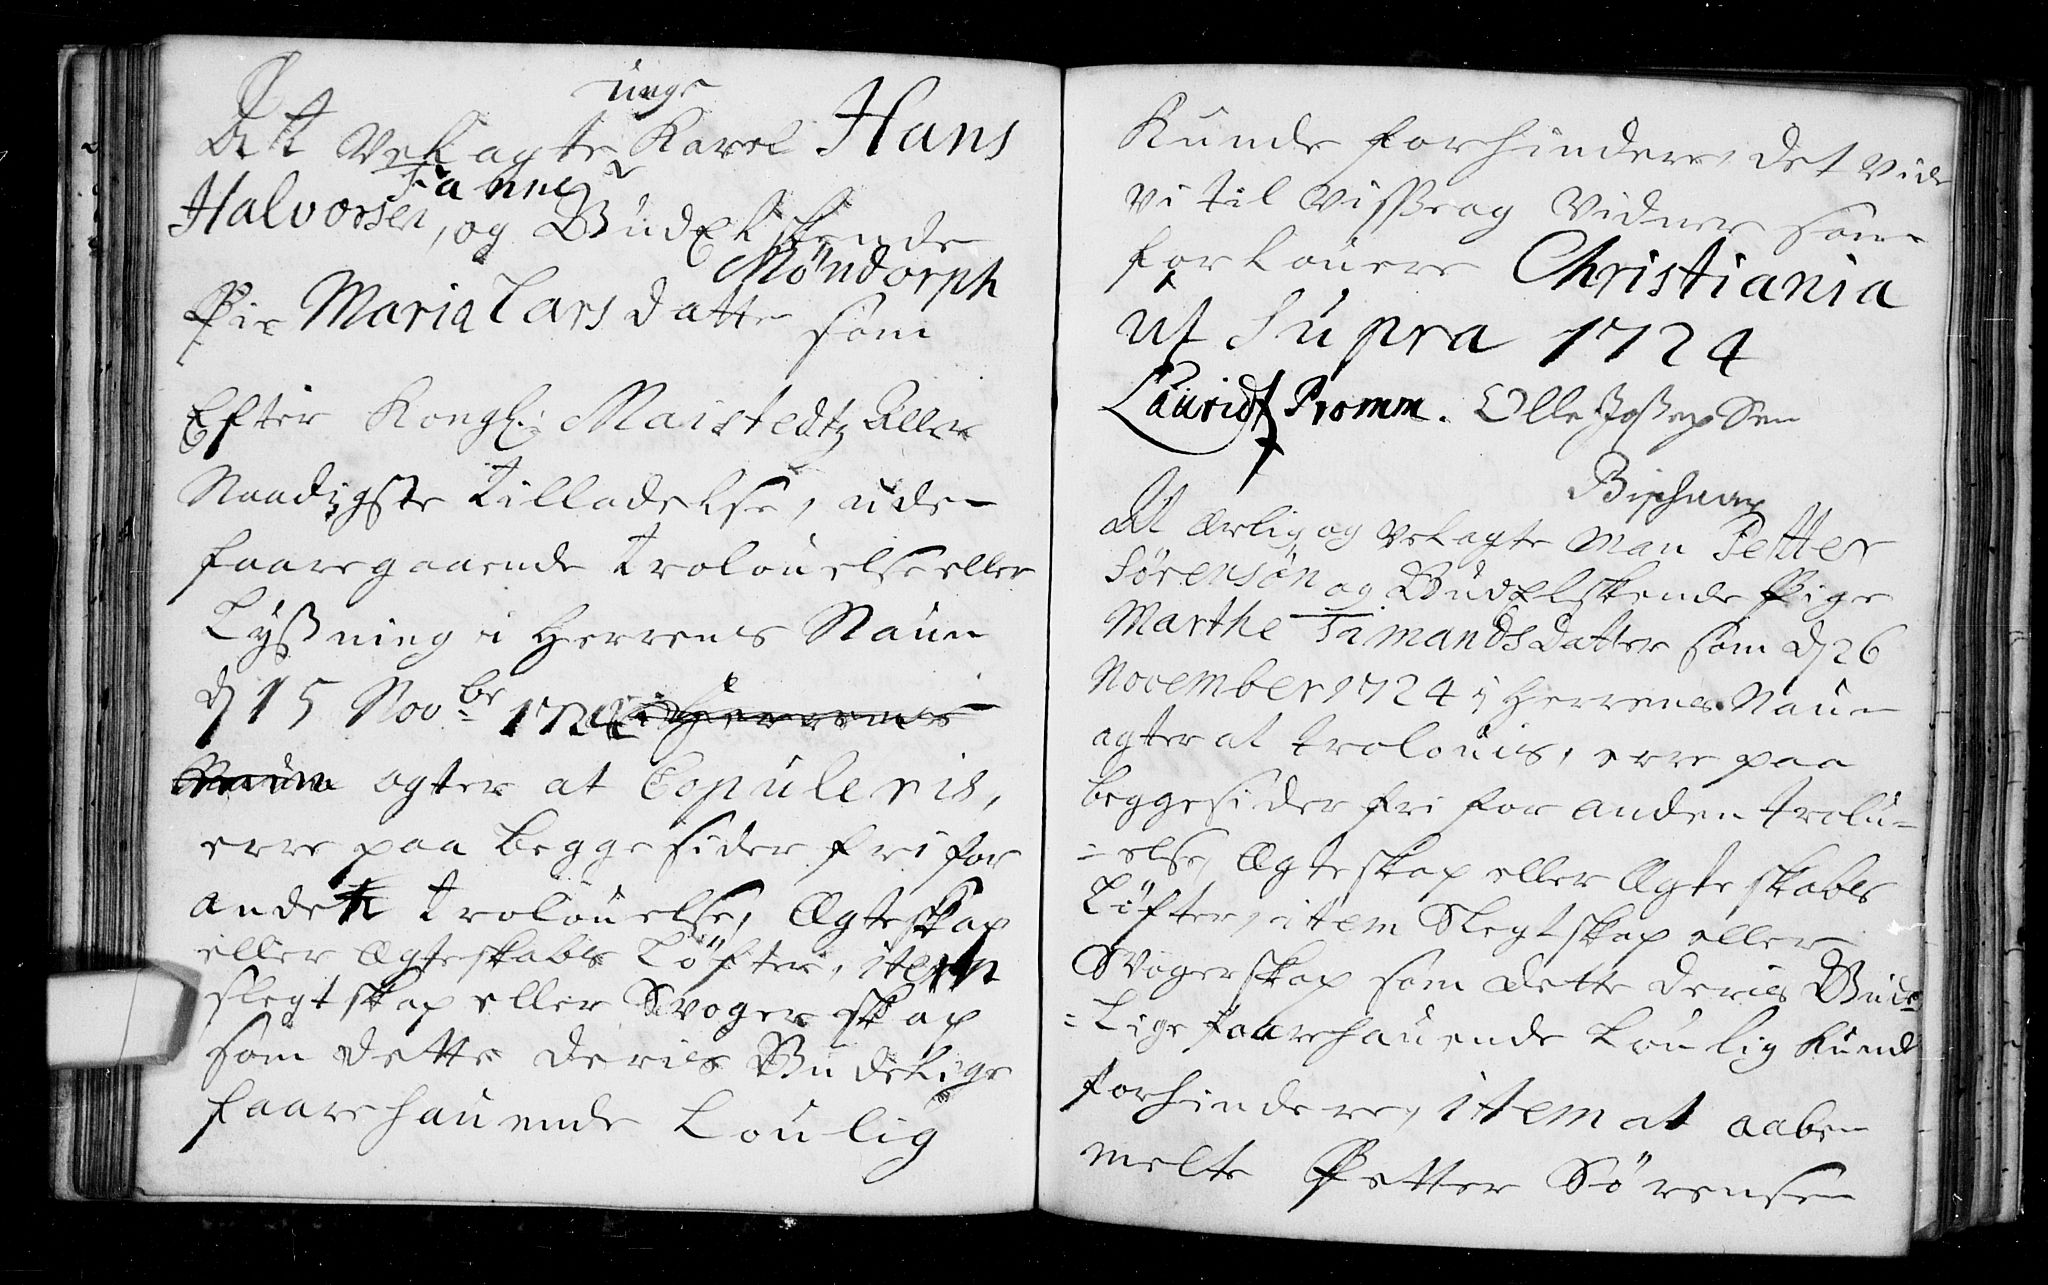 unge
At Velagte Karel Hans
Fanne
Halvorsen, og Gudelskende
Möndorph
Pie Maria Lars datter som
Efter Kongl: Maistedtz Aller
Naadigste Tilladelse, uden
faaregaaende Trolouelse eller
Lyßning i Herrens Naun
d 15 Novbr 1724 i Herrens
Naun agter at Copuleris,
erre paa begge sider fri for
anden Trolouelse, Ægteskap
eller Ægteskabs Löfter, item
slegtskap eller Svogerskap
som dette deris Gudelige
faarehauende Loulig
Kunde forhindere, det vide
vi til visse og Vidner som
forlouere Christiania
ut Supra 1724
Laurids Promm. Olle Joßepsen
At ærlig og velagte Man Petter
Sörensön og Gudelskende Pige
Marthe Timandsdatter som d 26
November 1724 i Herrens Naun
agter at trolouis, erre paa
beggesider fri for anden trolu-
-else, Ægteskap eller Ægteskabs
Löfter, item Slegtskap eller
Svogerskap som dette deris Gude
=lige faarehauende Loulig kunde
forhindere, item at aaben
melte Petter Sörensen